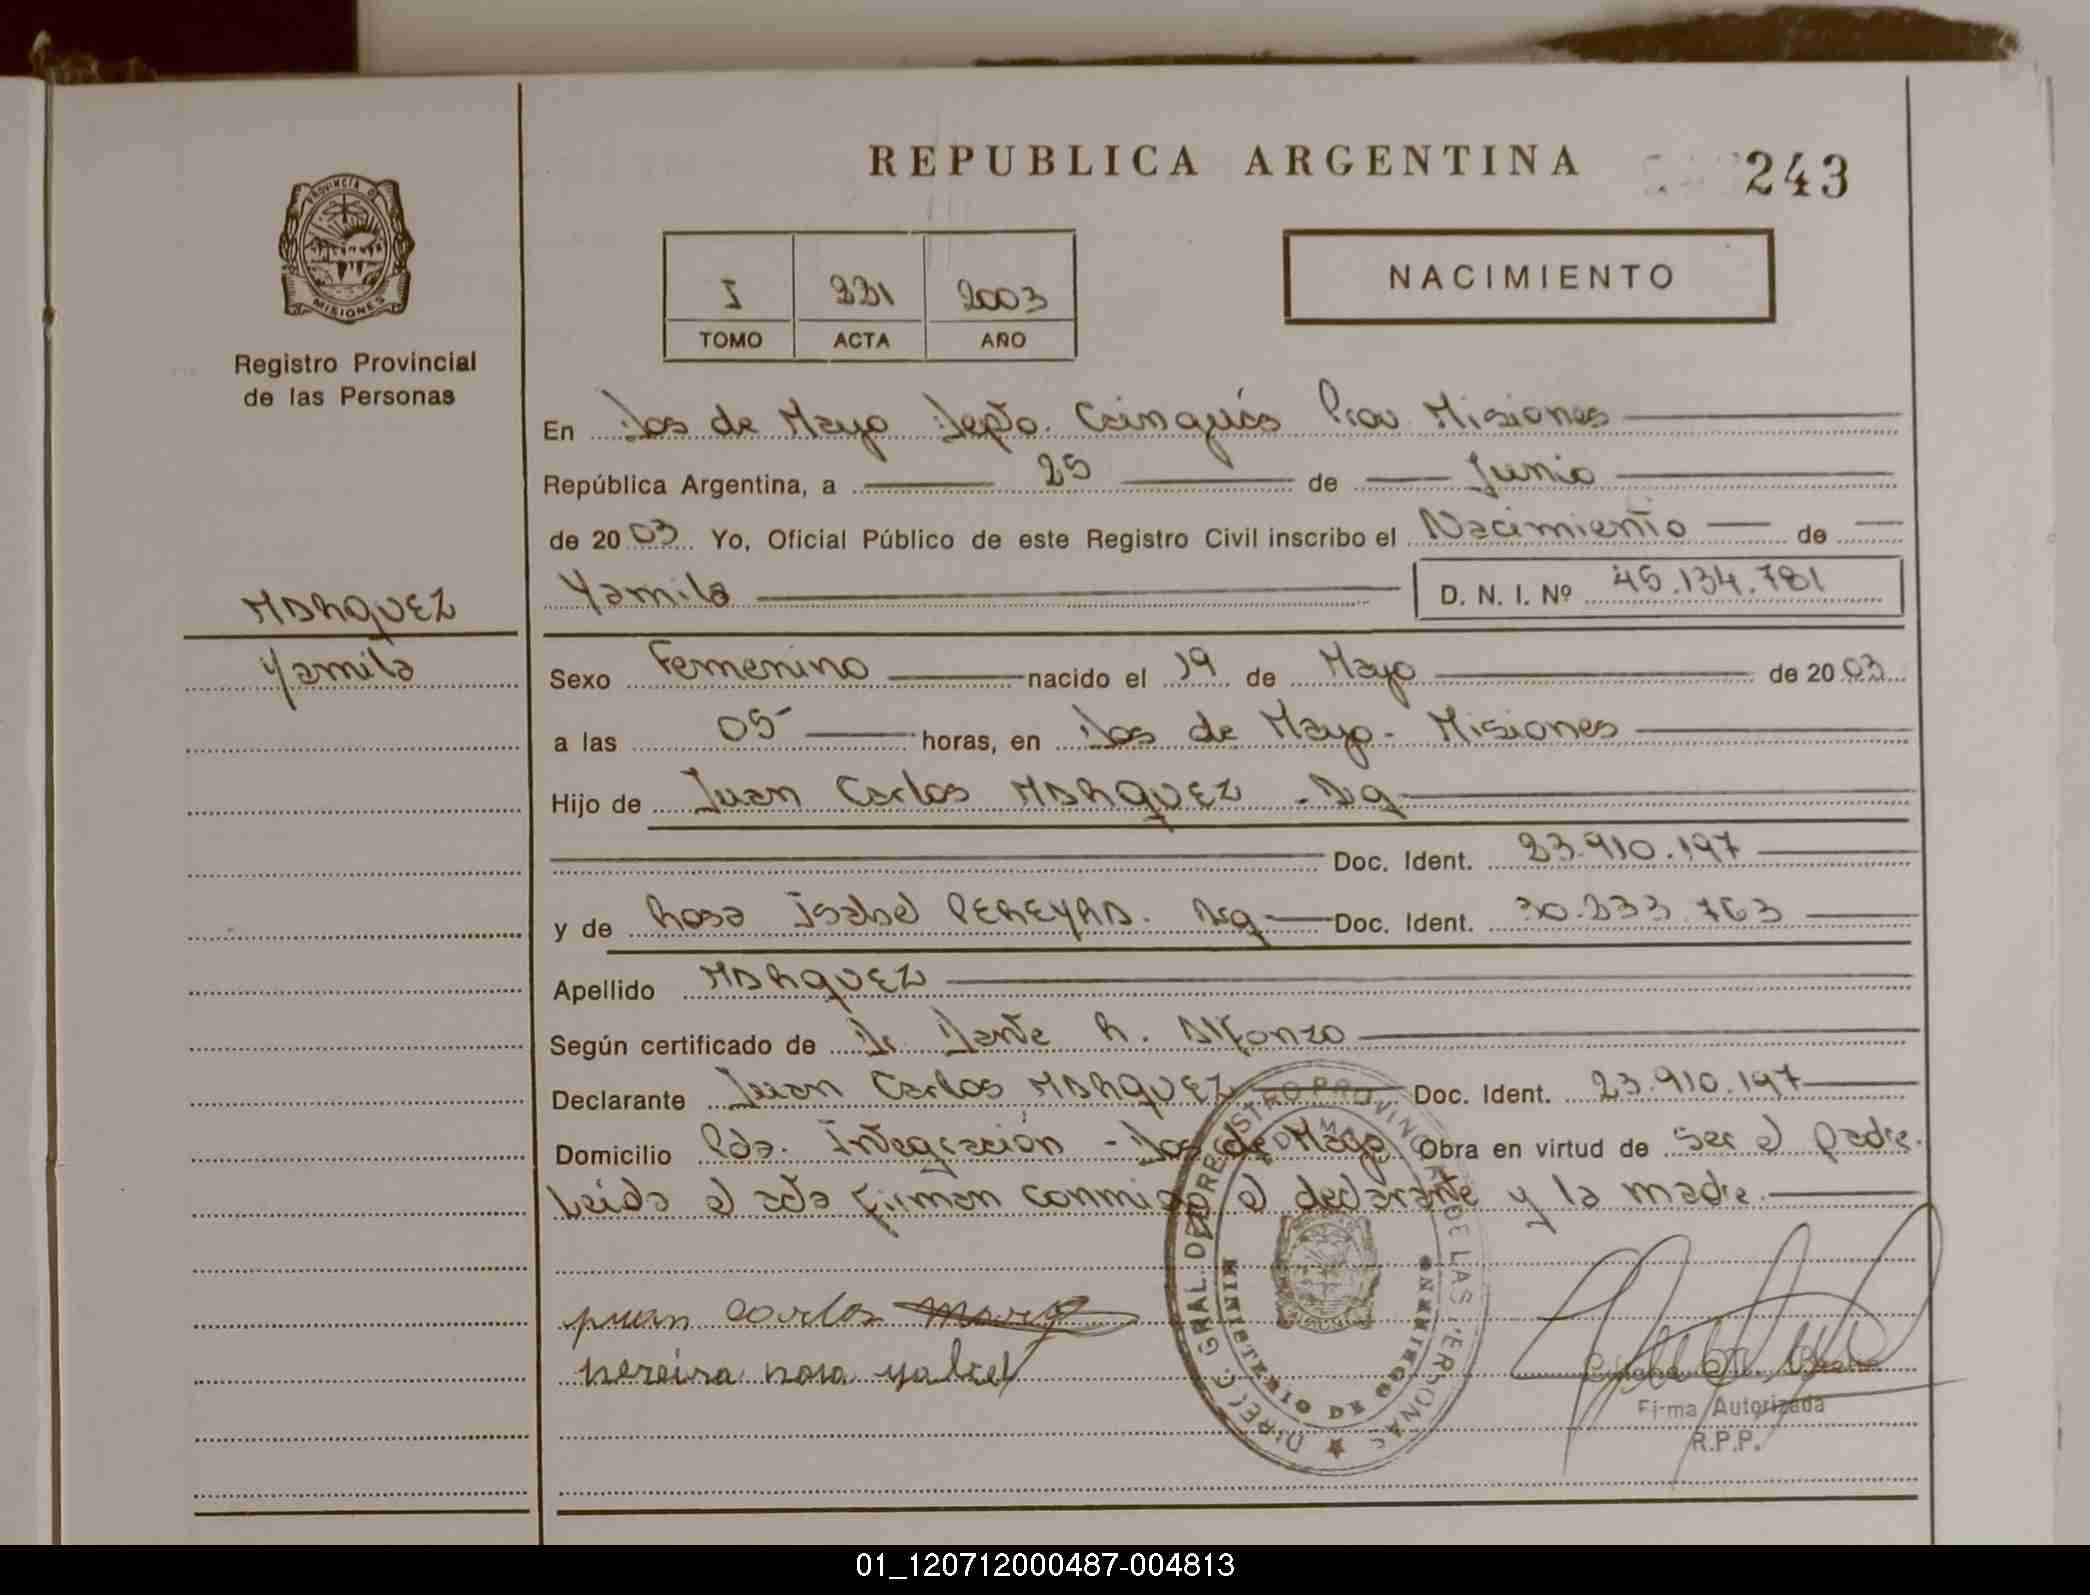 REPUBLICA ARGENTINA
243
PROVINCIA DE
MISIONES
Registro Provincial
de las Personas
NACIMIENTO
I 231 2003
TOMO ACTA AÑO
En Dos de Mayo Depto. Cainguás Prov Misiones
República Argentina, a 25 de Junio
de 2003 Yo, Oficial Público de este Registro Civil inscribo el Nacimiento de
Yamila D. N. I. Nº 45.134.781
MARQUEZ
Yamila
Sexo Femenino nacido el 19 de Mayo de 2003
a las 05- horas, en Dos de Mayo- Misiones
Hijo de Juan Carlos MARQUEZ -Arg
Doc. Ident. 23.910.197
y de Rosa Isabel PEREYRA. Arg Doc. Ident. 30.233.763
Apellido MARQUEZ
Según certificado de Dr. Dante R. Alfonzo
Declarante Juan Carlos MARQUEZ Doc. Ident. 23.910.197
Domicilio Pda. Integración - Dos de Mayo Obra en virtud de ser el padre.
Leida el acta firman conmigo el declarante y la madre.
juan carlos marq
pereira rosa ysabel
DIREC. GRAL. DEL REGISTRO PROVINCIAL DE LAS PERSONAS
MINISTERIO DE GOBIERNO
Firma Autorizada
R.P.P.
01_120712000487-004813